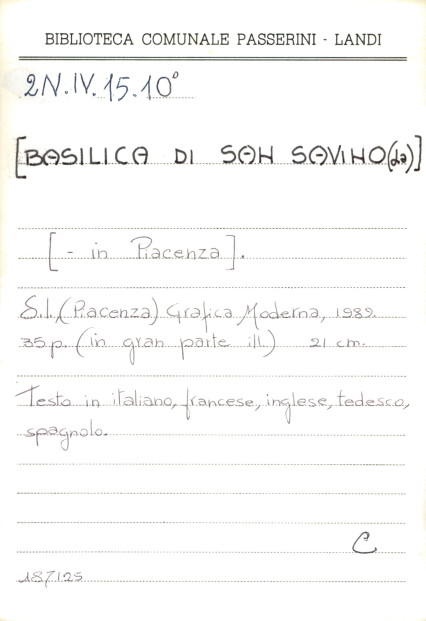 BIBLIOTECA COMUNALE PASSERINI - LANDI
2N.IV.15.10°
[BASILICA DI SAN SAVINO(la)]
[- in Piacenza].
S.l. (Piacenza) Grafica Moderna, 1989.
35 p. (in gran parte ill.) 21 cm.
Testo in italiano, francese, inglese, tedesco,
spagnolo.
C
187125